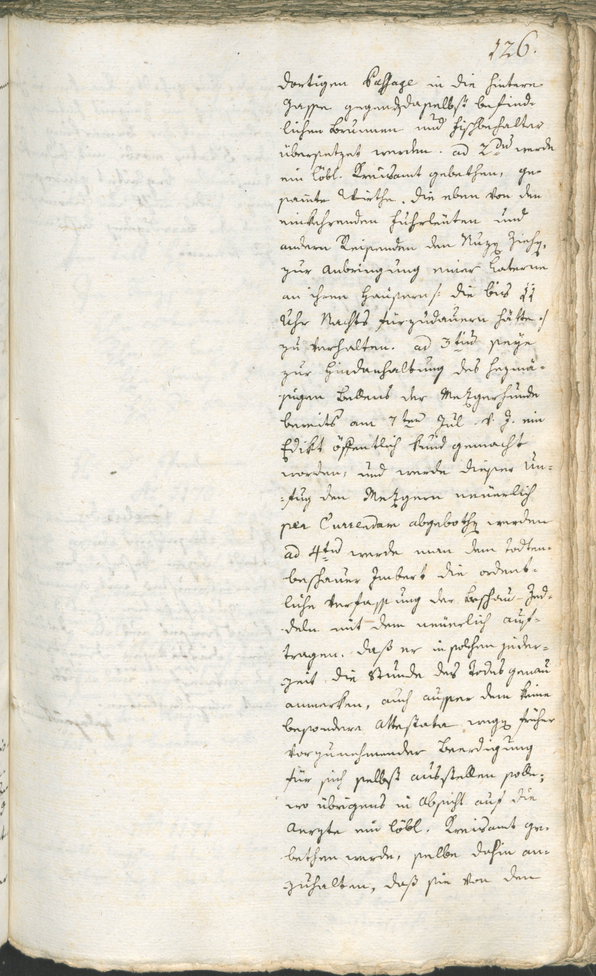 126.
dortigen Passage in die hintere
Gasse gegen daselbst befind-
lichen Brunnen und Fischbehalter
übersetzet werden. ad 2dum werde
ein löbl. Kreisamt gebethen, ge-
samte Wirthe, die eben von den
einkehrenden Fuhrleuten und
andern Reisenden den Nuzen ziehen,
zur Anbringung einer Laterne
an ihren Häusern /: die bis 11
Uhr Nachts fürzudauern hätte :/
zu verhalten. ad 3tium seye
zur Hindanhaltung des
Bellens der Metzgerhunde
bereits am 7ten Jul. d. J. ein
Edikt öffentlich kund gemacht
worden, und werde dieser Un-
fug den Metzgern neuerlich
per Currendam abgebothen werden
ad 4tum werde man dem Todten-
beschauer Imbert die ordent-
liche Verfassung der Beschau-Zed-
deln mit dem neuerlich auf-
tragen, daß er in solchen jeder-
zeit die Stunde des Todes genau
anmerken, auch ausser dem keine
besondere Attestate wegen früher
vorzunehmender Beerdigung
für sich selbst ausstellen solle;
wo übrigens in Absicht auf die
Aerzte ein löbl. Kreisamt ge-
bethen werde, selbe dahin an-
zuhalten, daß sie von dem